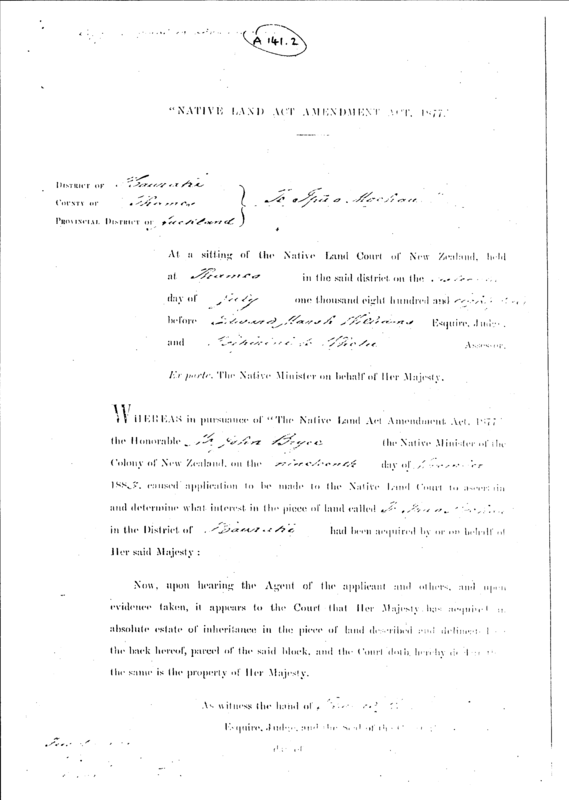 A 141.2
"NATIVE LAND ACT AMENDMENT ACT, 1877."
DISTRICT OF Hauraki
COUNTY OF Thames
PROVINCIAL DISTRICT OF Auckland
At a sitting of the Native Land Court of New Zealand, held
at Thames in the said district on the
day of July one thousand eight hundred and eighty
before Edward Marsh Williams Esquire, Judge,
and Assessor.
Ex parte. The Native Minister on behalf of Her Majesty.
WHEREAS in pursuance of "The Native Land Act Amendment Act, 1877"
the Honorable John Bryce the Native Minister of the
Colony of New Zealand, on the nineteenth day of
188 , caused application to be made to the Native Land Court to ascertain
and determine what interest in the piece of land called
in the District of Hauraki had been acquired by or on behalf of
Her said Majesty:
Now, upon hearing the Agent of the applicant and others, and upon
evidence taken, it appears to the Court that Her Majesty has acquired an
absolute estate of inheritance in the piece of land described and delineated on
the back hereof, parcel of the said block, and the Court doth hereby
the same is the property of Her Majesty.
As witness the hand of
Esquire, Judge, and the Seal of the